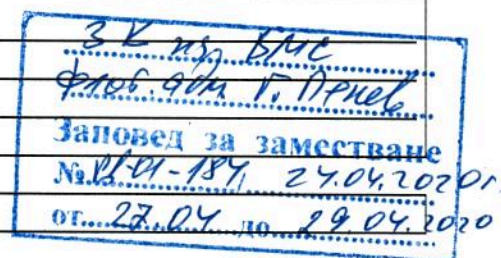 ЗК на ВМС
флот. адм Г. Пенев
Заповед за заместване
№ РД-01-184, 24.04.2020г.
от 27.04 до 29.04.2020